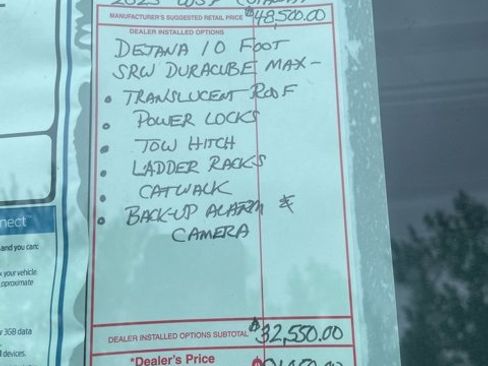 MANUFACTURER'S SUGGESTED RETAIL PRICE $48,500.00
DEALER INSTALLED OPTIONS
DEJANA 10 FOOT
SRW DURACUBE MAX-
• TRANSLUCENT ROOF
• POWER LOCKS
• TOW HITCH
• LADDER RACKS
• CATWALK
• BACK-UP ALARM &
CAMERA
DEALER INSTALLED OPTIONS SUBTOTAL $32,550.00
*Dealer's Price
nect
and you can:
your vehicle
3GB data
devices.